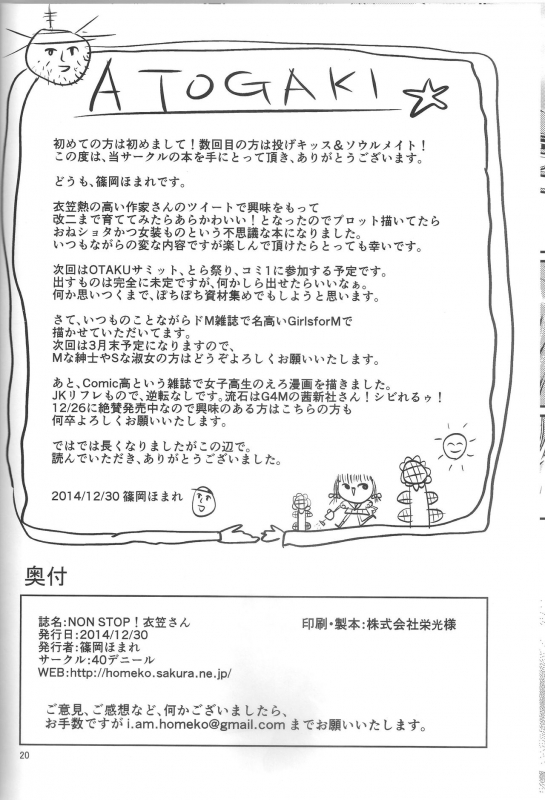 ATOGAKI
初めての方は初めまして！数回目の方は投げキッス＆ソウルメイト！
この度は、当サークルの本を手にとって頂き、ありがとうございます。
どうも、篠岡ほまれです。
衣笠熱の高い作家さんのツイートで興味をもって
改二まで育ててみたらあらかわいい！となったのでプロット描いてたら
おねショタかつ女装ものという不思議な本になりました。
いつもながらの変な内容ですが楽しんで頂けたらとっても幸いです。
次回はOTAKUサミット、とら祭り、コミ1に参加する予定です。
出すものは完全に未定ですが、何かしら出せたらいいなぁ。
何か思いつくまで、ぽちぽち資材集めでもしようと思います。
さて、いつものことながらドM雑誌で名高いGirlsforMで
描かせていただいてます。
次回は3月末予定になりますので、
Mな紳士やSな淑女の方はどうぞよろしくお願いいたします。
あと、Comic高という雑誌で女子高生のえろ漫画を描きました。
JKリフレもので、逆転なしです。流石はG4Mの茜新社さん！シビれるゥ！
12/26に絶賛発売中なので興味のある方はこちらの方も
何卒よろしくお願いします。
ではでは長くなりましたがこの辺で。
読んでいただき、ありがとうございました。
2014/12/30 篠岡ほまれ
奥付
誌名:NON STOP！衣笠さん
発行日:2014/12/30
発行者:篠岡ほまれ
サークル:40デニール
WEB:http://homeko.sakura.ne.jp/
印刷・製本:株式会社栄光様
ご意見、ご感想など、何かございましたら、
お手数ですが i.am.homeko@gmail.com までお願いいたします。
20